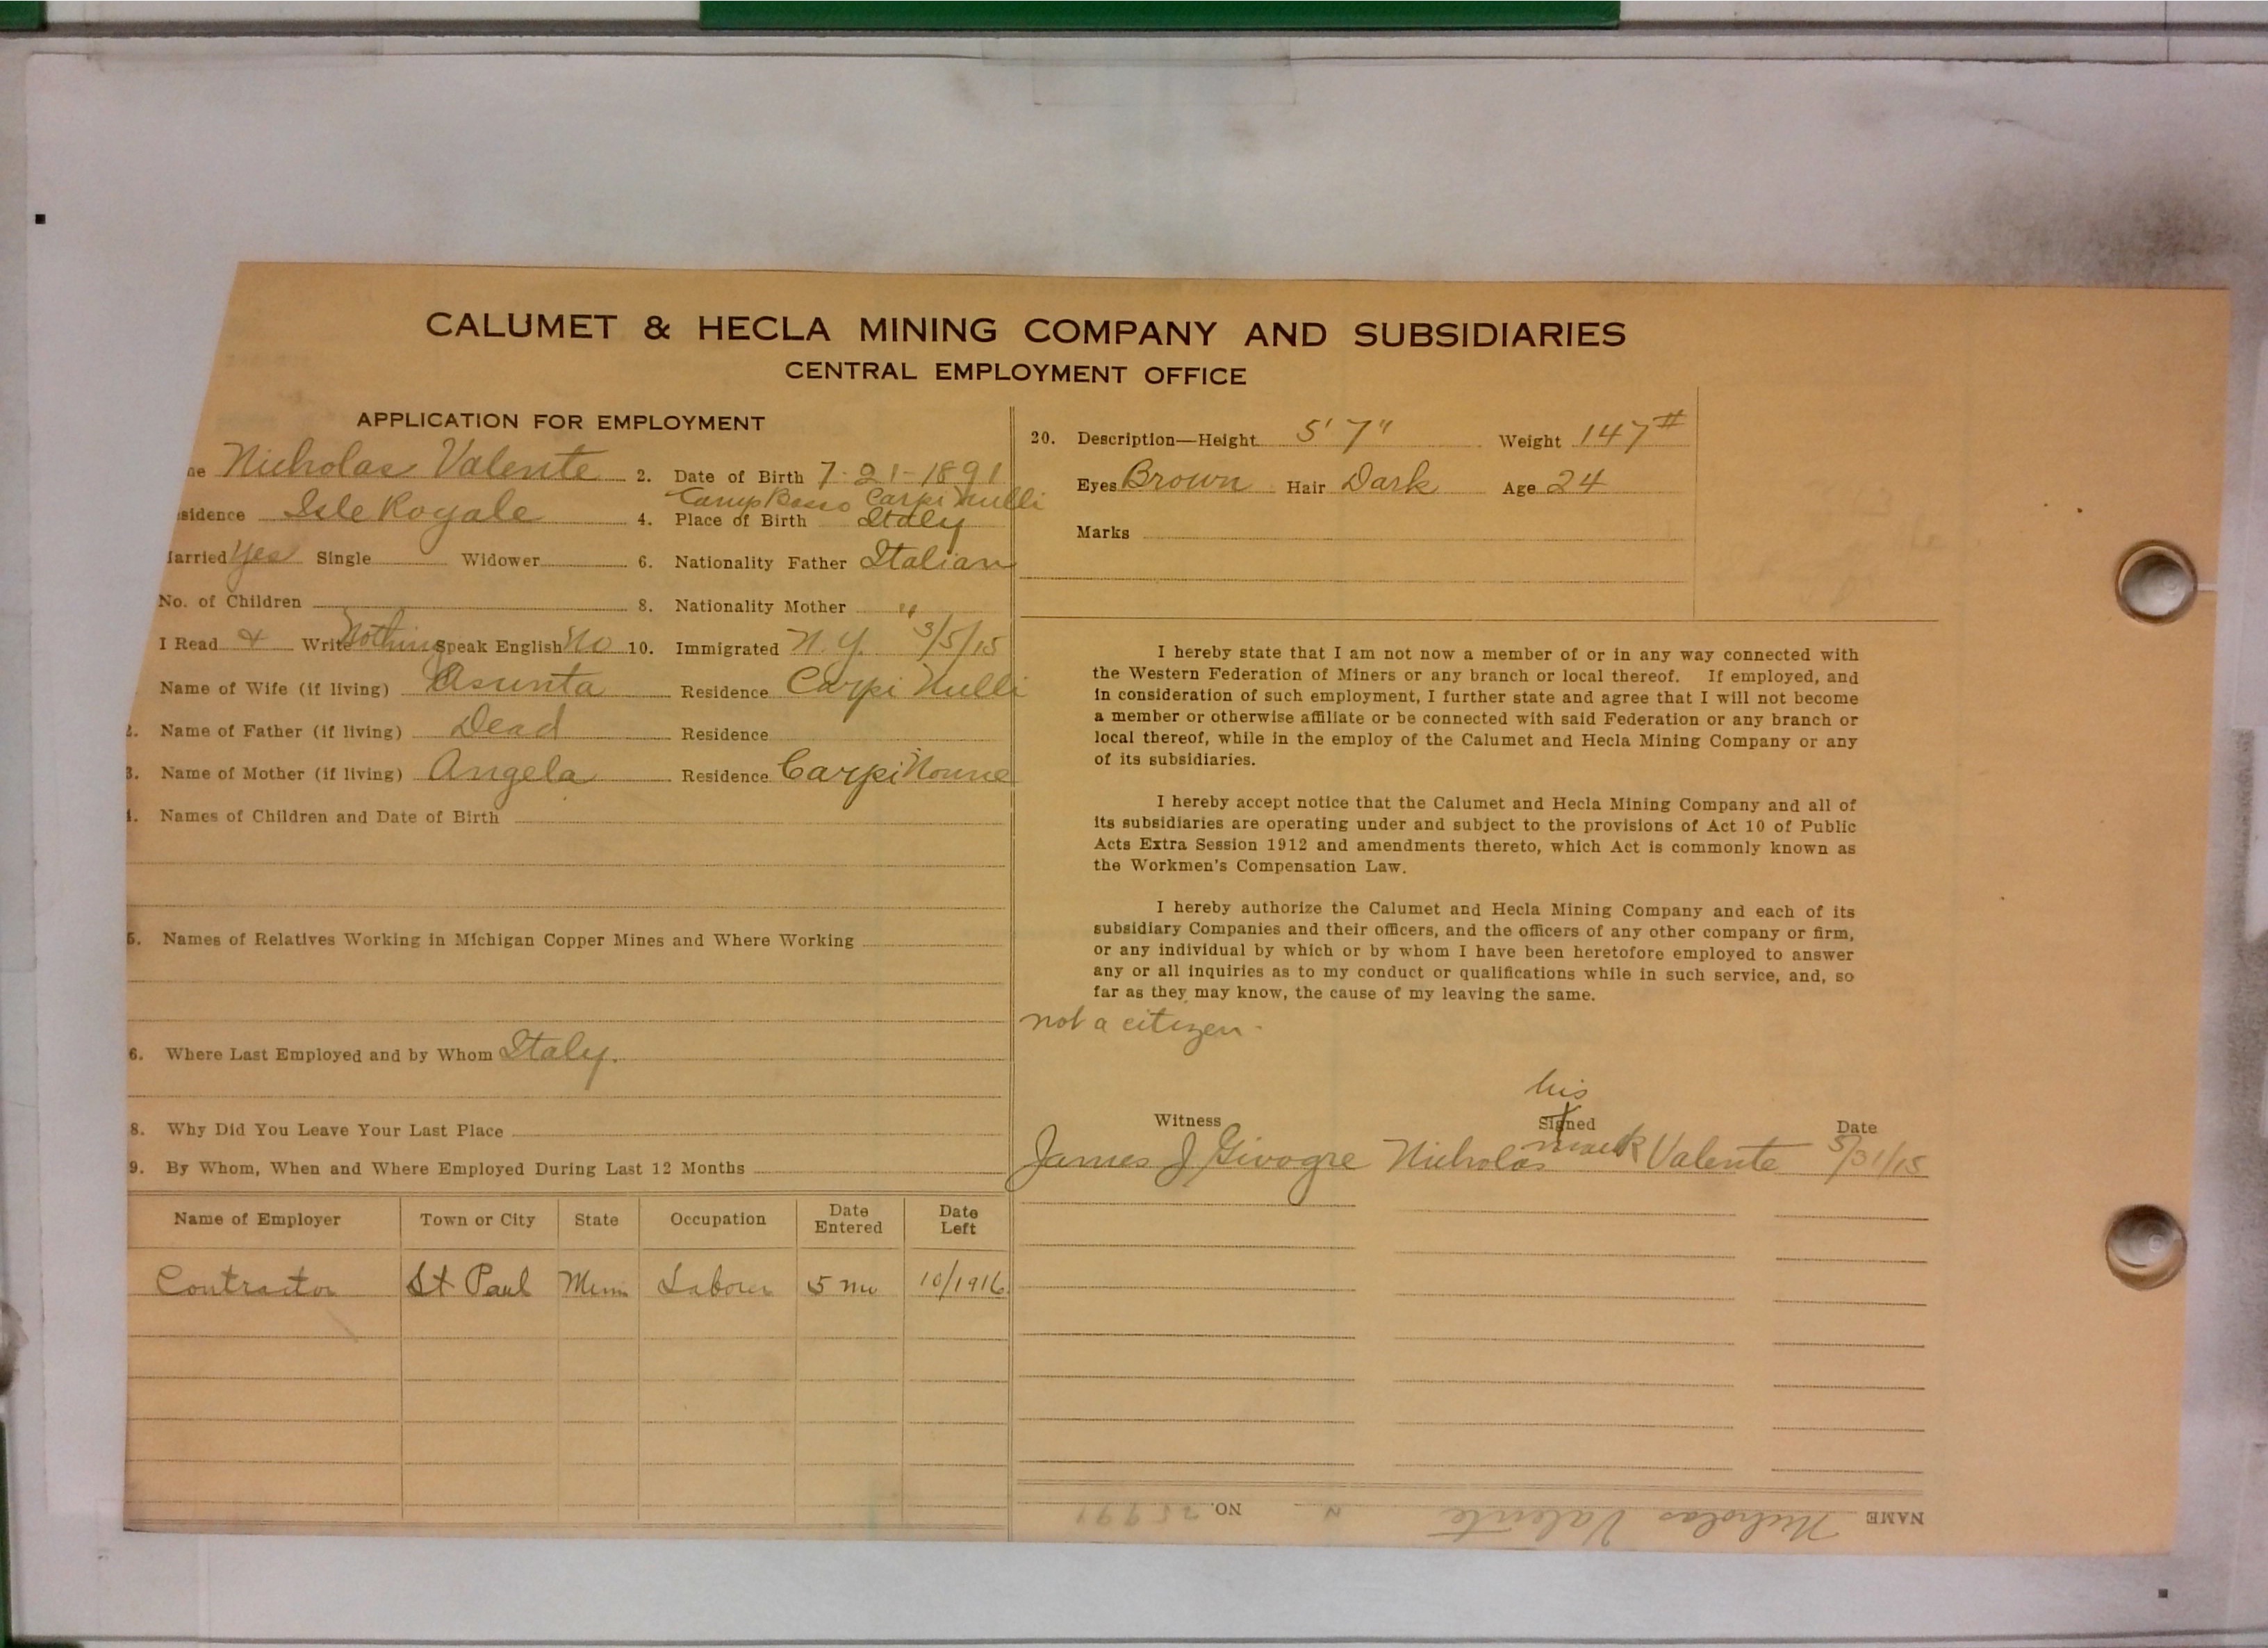 CALUMET & HECLA MINING COMPANY AND SUBSIDIARIES
CENTRAL EMPLOYMENT OFFICE
APPLICATION FOR EMPLOYMENT
ne Nicholas Valente 2. Date of Birth 7-21-1891
CampBasso Carpi Nulli
sidence Isle Royale 4. Place of Birth Italy
arried Yes Single Widower 6. Nationality Father Italian
No. of Children 8. Nationality Mother "
I Read & Write Nothing Speak English No 10. Immigrated N.Y. 3/5/15
Name of Wife (if living) Asunta Residence Carpi Nulli
2. Name of Father (if living) Dead Residence
3. Name of Mother (if living) Angela Residence Carpi Noune
4. Names of Children and Date of Birth
5. Names of Relatives Working in Michigan Copper Mines and Where Working
6. Where Last Employed and by Whom Italy.
8. Why Did You Leave Your Last Place
9. By Whom, When and Where Employed During Last 12 Months
Name of Employer Town or City State Occupation Date Entered Date Left
Contractor St Paul Minn Labour 5 mo 10/1916
20. Description—Height 5' 7" Weight 147#
Eyes Brown Hair Dark Age 24
Marks
I hereby state that I am not now a member of or in any way connected with
the Western Federation of Miners or any branch or local thereof. If employed, and
in consideration of such employment, I further state and agree that I will not become
a member or otherwise affiliate or be connected with said Federation or any branch or
local thereof, while in the employ of the Calumet and Hecla Mining Company or any
of its subsidiaries.
I hereby accept notice that the Calumet and Hecla Mining Company and all of
its subsidiaries are operating under and subject to the provisions of Act 10 of Public
Acts Extra Session 1912 and amendments thereto, which Act is commonly known as
the Workmen's Compensation Law.
I hereby authorize the Calumet and Hecla Mining Company and each of its
subsidiary Companies and their officers, and the officers of any other company or firm,
or any individual by which or by whom I have been heretofore employed to answer
any or all inquiries as to my conduct or qualifications while in such service, and, so
far as they may know, the cause of my leaving the same.
not a citizen -
his
Witness Signed Date
James J Givogre Nicholas mark Valente 5/31/15
NAME Nicholas Valente NO.